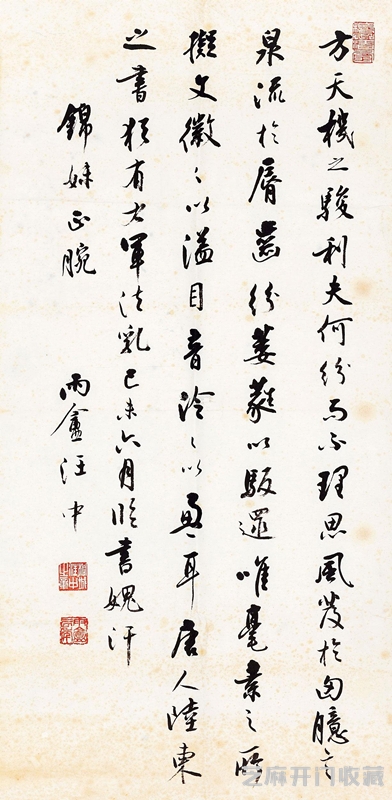 方天機之駿利夫何紛而不理思風發於匈臆言
泉流於脣齒紛萎蕤以馺遝唯毫素之所
擬文徽〻以溢目音泠〻以盈耳唐人陸柬
之書猶有右軍法乳己未六月臨書媿汗
錦妹正腕
雨盦汪中
芝麻开门收藏